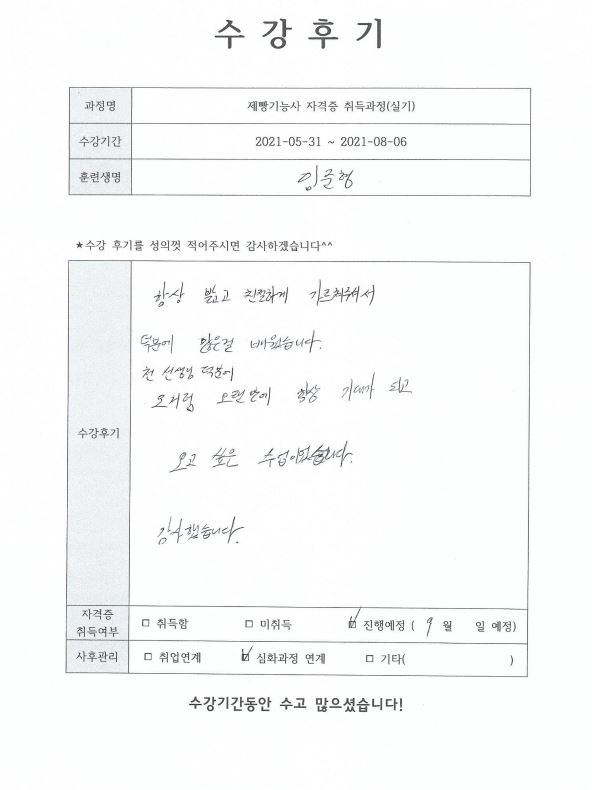 수강후기
과정명 제빵기능사 자격증 취득과정(실기)
수강기간 2021-05-31 ~ 2021-08-06
훈련생명 임준형
★수강 후기를 성의껏 적어주시면 감사하겠습니다^^
수강후기
항상 밝고 친절하게 가르쳐주셔서
덕분에 많은걸 배웠습니다.
천 선생님 덕분에
모처럼 오랜만에 항상 기대가 되고
오고 싶은 수업이었습니다.
감사했습니다.
자격증 취득여부 □ 취득함 □ 미취득 ☑ 진행예정 ( 9 월 일 예정)
사후관리 □ 취업연계 ☑ 심화과정 연계 □ 기타( )
수강기간동안 수고 많으셨습니다!